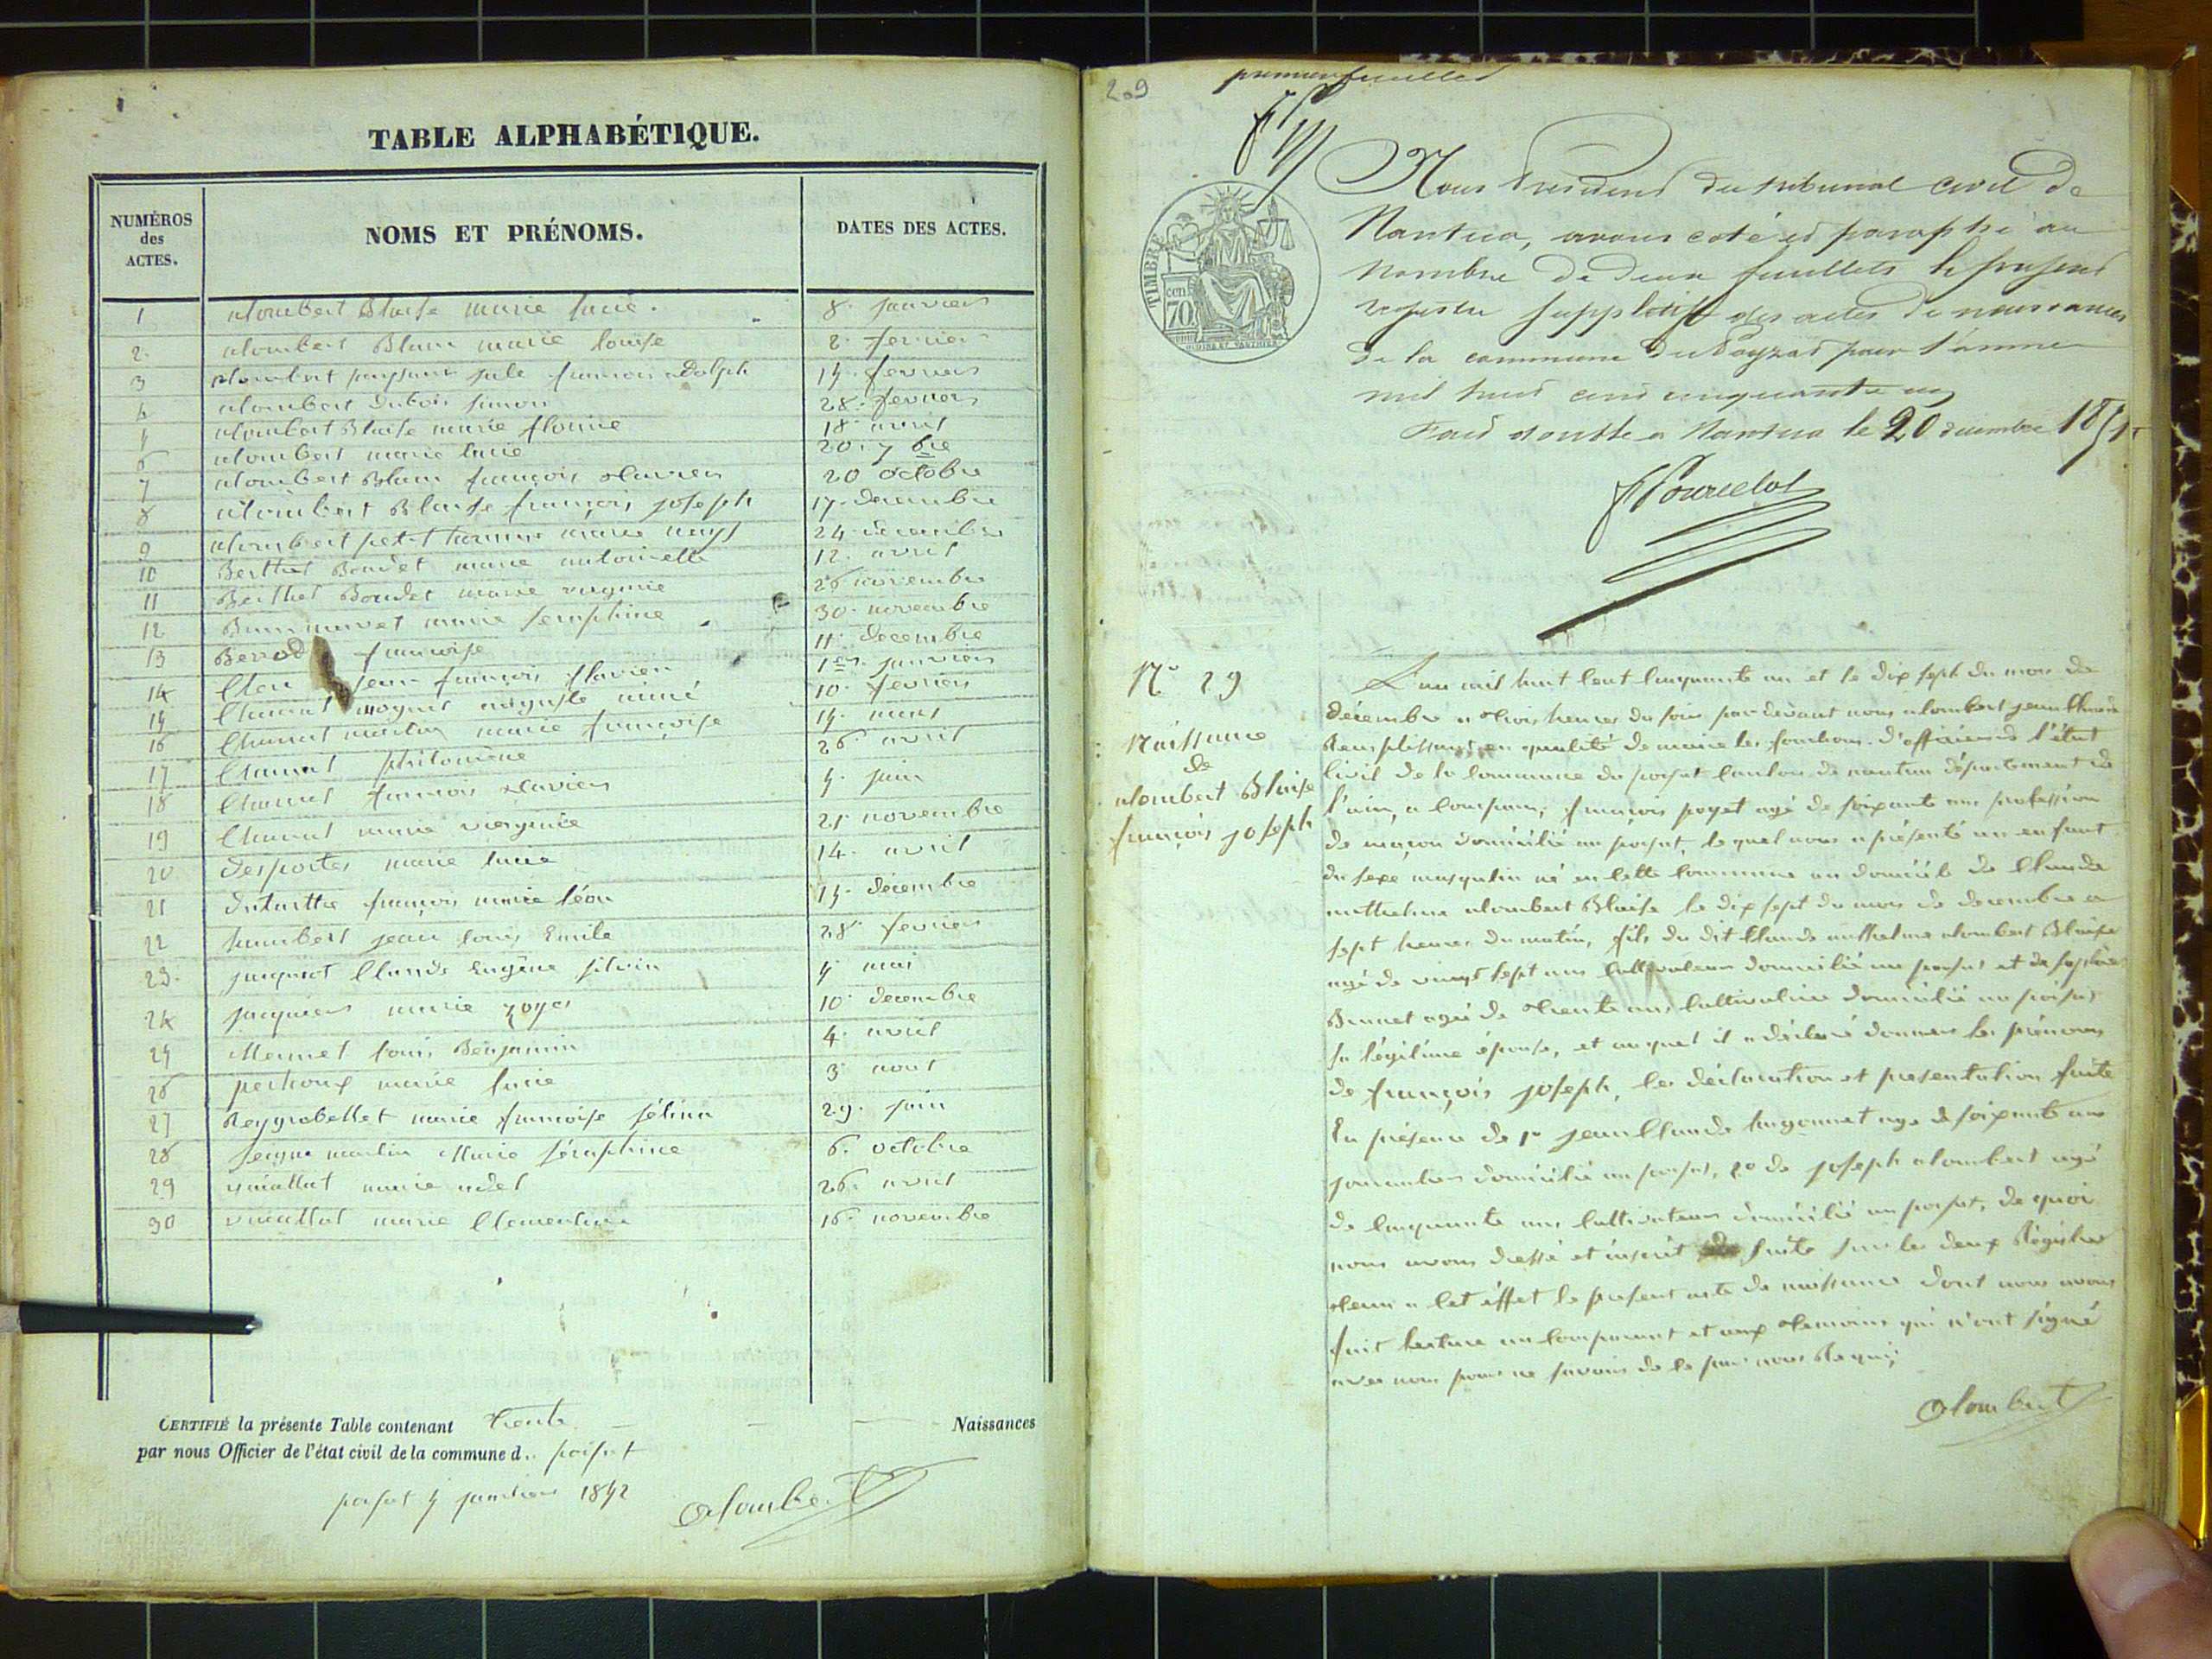 TABLE ALPHABÉTIQUE.
NUMÉROS des ACTES. NOMS ET PRÉNOMS. DATES DES ACTES.
1 alombert Blaise marie lucie. 8. janvier
2. alombert Blain marie louise 2. fevrier
3 alombert jule francois adolph 14. fevrier
4 alombert Dubois simon 28. fevrier
5 alombert Blaise marie 18 avril
6 alombert marie lucie 20. 7 bre
7 alombert Blain françois flavien 20 octobre
8 alombert Blaise françois joseph 17. decembre
9 alombert petit marie 24. decembre
10 Berthet Bondet marie antoinette 12. avril
11 Berthet Bondet marie virginie 26 novembre
12 marie seraphine 30. novembre
13 francoise 11. decembre
14 jean françois flavien 1er. janvier
15 auguste aimé 10. fevrier
16 martin marie françoise 14. mars
17 philomène 26 avril
18 francois flavien 4. juin
19 marie virginie 21 novembre
20 desportes marie lucie 14. avril
21 dutarttre françois marie léon 14. décembre
22 humbert jean louis Emile 28. fevrier
23. jacquiot Claude Eugène silvin 4 mai
24 marie 10. decembre
25 Mermet louis Benjamin 4. avril
26 marie lucie 3 aout
27 Reygrobellet marie francoise félina 29. juin
28 martin Marie Séraphine 6. octobre
29 vuaillat marie adel 26. avril
30 vuaillat marie Clementine 16. novembre
CERTIFIÉ la présente Table contenant trente Naissances
par nous Officier de l'état civil de la commune d.. poisat
4 janvier 1852 Alombert
209 premier feuillet
Nous Président du tribunal civil de
Nantua, avons coté et paraphé au
nombre de deux feuillets le présent
registre supplétif des actes de naissances
de la commune du Poyzat pour l'année
mil huit cent cinquante un
Fait double a Nantua le 20 décembre 1851
TIMBRE
cent 70
N° 29
Naissance
de
alombert Blaise
françois joseph
L'an mil huit Cent Cinquante un et le dix sept du mois de
décembre a trois heures du soir par devant nous alombert jean Claude
Remplissant en qualité de maire les fonctions d'officier de l'état
Civil de la Commune du poysat Canton de nantua département de
l'ain, a Comparu, françois poyet agé de soixante ans profession
de maçon domicilié au poysat, lequel nous a présenté un enfant
du sexe masqulin né en Cette Commune au domicile de Claude
anthelme alombert Blaise le dix sept du mois de decembre a
sept heures du matin, fils du dit Claude anthelme alombert Blaise
agé de vingt sept ans Cultivateur domicilié au poysat et de
agée de trente ans, Cultivatrice domicilié au poisat
sa légitime épouse, et auquel il a déclaré donner les prénoms
de françois joseph, les déclaration et presentation faite
En présence de 1° jean Claude agé de soixante ans
journalier domicilié au poysat, 2° de joseph alombert agé
de Cinquante ans Cultivateur domicilié au poysat, de quoi
nous avons dressé et inscrit de suite sur les deux Régistres
tenu a Cet éffet le present acte de naissance dont nous avons
fait lecture au Comparant et aux temoins qui n'ont signé
avec nous pour ne savoir de ce par nous Requis
Alombert